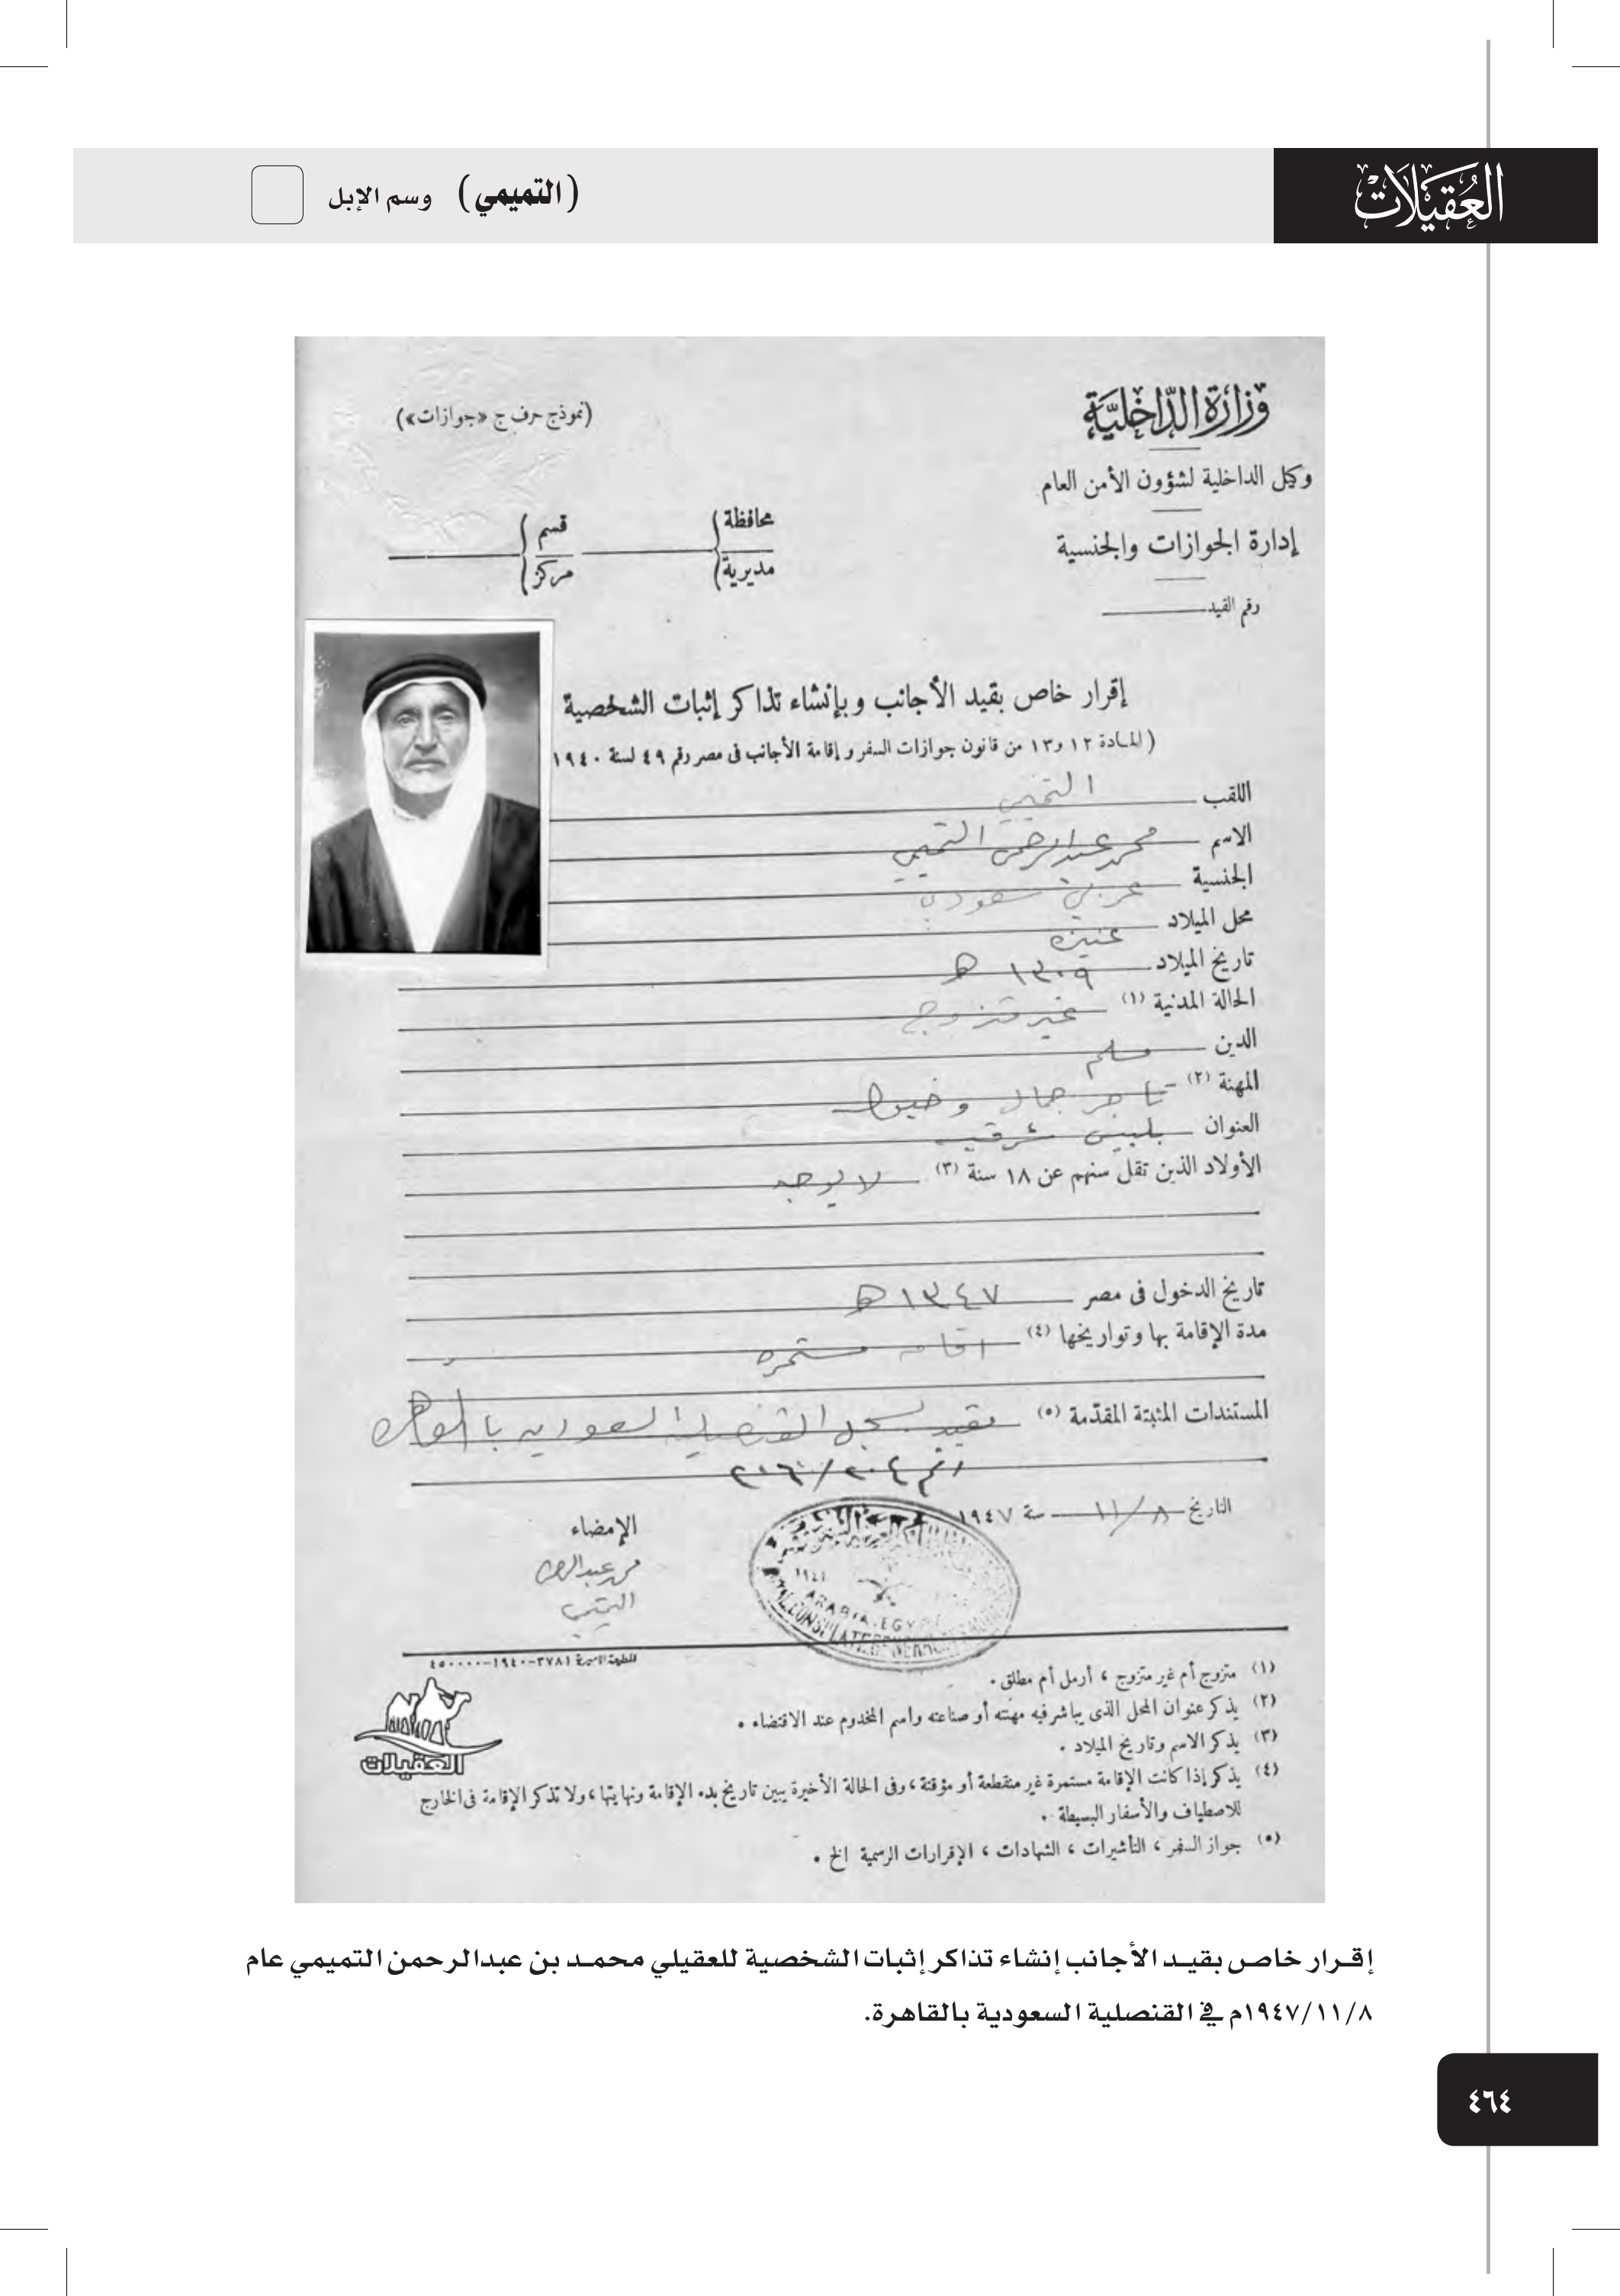 العُقيلات
(التميمي) وسم الإبل
وزارة الداخلية
(نموذج حرف ج «جوازات»)
وكيل الداخلية لشؤون الأمن العام
إدارة الجوازات والجنسية
محافظة
مديرية
قسم
مركز
رقم القيد
إقرار خاص بقيد الأجانب وبإنشاء تذاكر إثبات الشخصية
(المادة ١٢ و١٣ من قانون جوازات السفر وإقامة الأجانب فى مصر رقم ٤٩ لسنة ١٩٤٠
اللقب التميمي
الاسم محمد عبدالرحمن التميمي
الجنسية عربي سعودي
محل الميلاد عنيزه
تاريخ الميلاد ١٣٠٩ هـ
الحالة المدنية (١) غير متزوج
الدين مسلم
المهنة (٢) تاجر جمال وخيول
العنوان بلبيس شرقيه
الأولاد الذين تقل سنهم عن ١٨ سنة (٣) لا يوجد
تاريخ الدخول فى مصر ١٣٤٧ هـ
مدة الإقامة بها وتواريخها (٤) اقامه مستمره
المستندات المثبتة المقدّمة (٥) مقيد بسجل القنصلية السعوديه بالقاهره
رقم
التاريخ ١١/٨ سنة ١٩٤٧
الإمضاء
محمد عبدالرحمن
التميمي
ARABIA. EGYPT
ROYAL CONSULATE GENERAL
المطبعة الاميرية ٣٧٨١-١٩٤٠-٤٥٠٠٠٠
(١) متزوج أم غير متزوج ، أرمل أم مطلق .
(٢) يذكر عنوان المحل الذى يباشر فيه مهنته أو صناعته واسم المخدوم عند الاقتضاء .
(٣) يذكر الاسم وتاريخ الميلاد .
(٤) يذكر إذا كانت الإقامة مستمرة غير منقطعة أو مؤقتة ، وفى الحالة الأخيرة يبين تاريخ بدء الإقامة ونهايتها ، ولا تذكر الإقامة فى الخارج
للاصطياف والأسفار البسيطة .
(٥) جواز السفر ، التأشيرات ، الشهادات ، الإقرارات الرسمية الخ .
العقيلات
إقـرار خاص بقيـد الأجانب إنشاء تذاكر إثبات الشخصية للعقيلي محمـد بن عبدالرحمن التميمي عام
١٩٤٧/١١/٨م في القنصلية السعودية بالقاهرة.
٤٦٤